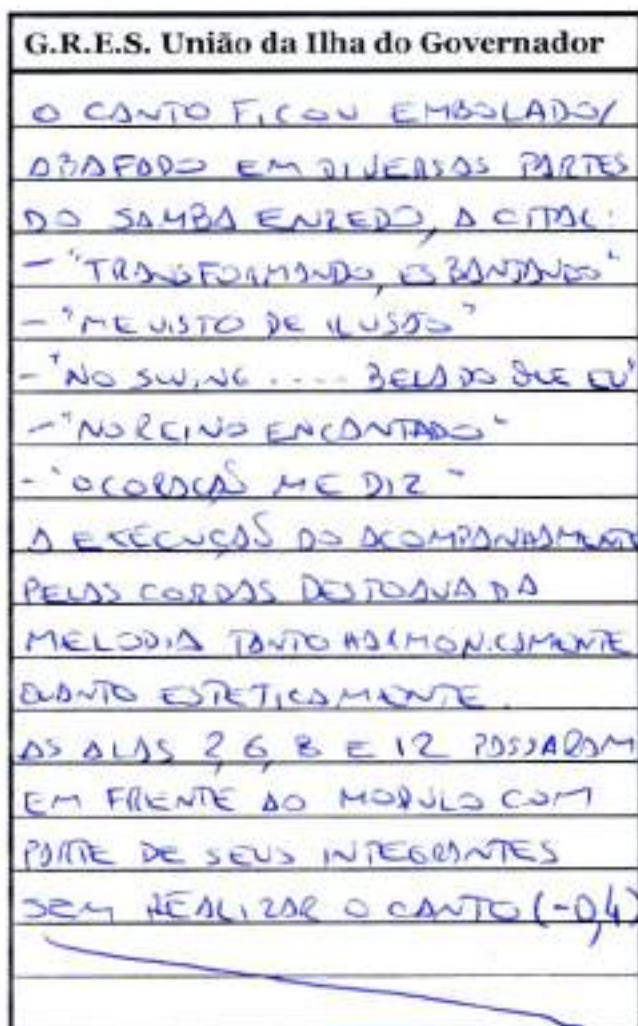 G.R.E.S. União da Ilha do Governador
O CANTO FICOU EMBOLADO/
ABAFADO EM DIVERSAS PARTES
DO SAMBA ENREDO, A CITAR:
- "TRANSFORMANDO, ESBANJANDO"
- "ME VISTO DE ILUSÃO"
- "NO SWING .... BELA DO QUE EU"
- "NO REINO ENCANTADO"
- "O CORAÇÃO ME DIZ"
A EXECUÇÃO DO ACOMPANHAMENTO
PELAS CORDAS DESTOAVA DA
MELODIA TANTO HARMONICAMENTE
QUANTO ESTETICAMENTE.
AS ALAS 2, 6, 8 E 12 PASSARAM
EM FRENTE AO MODULO COM
PARTE DE SEUS INTEGRANTES
SEM REALIZAR O CANTO (-0,4)